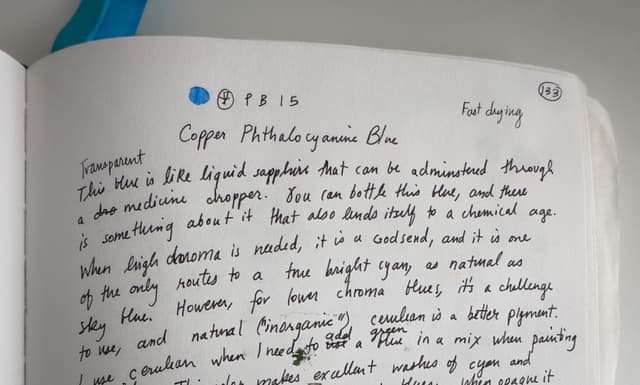 133
PB 15
Fast drying
Copper Phthalocyanine Blue
Transparent
This blue is like liquid sapphire that can be adminstered through
a dro medicine dropper. You can bottle this blue, and there
is something about it that also lends itself to a chemical age.
When high chroma is needed, it is a Godsend, and it is one
of the only routes to a true bright cyan, as natural as
sky blue. However, for lower chroma blues, it's a challenge
to use, and natural ("inorganic") cerulean is a better pigment.
I use cerulean when I need to add a green blue in a mix when painting
makes excellent washes of cyan and
when opaque it